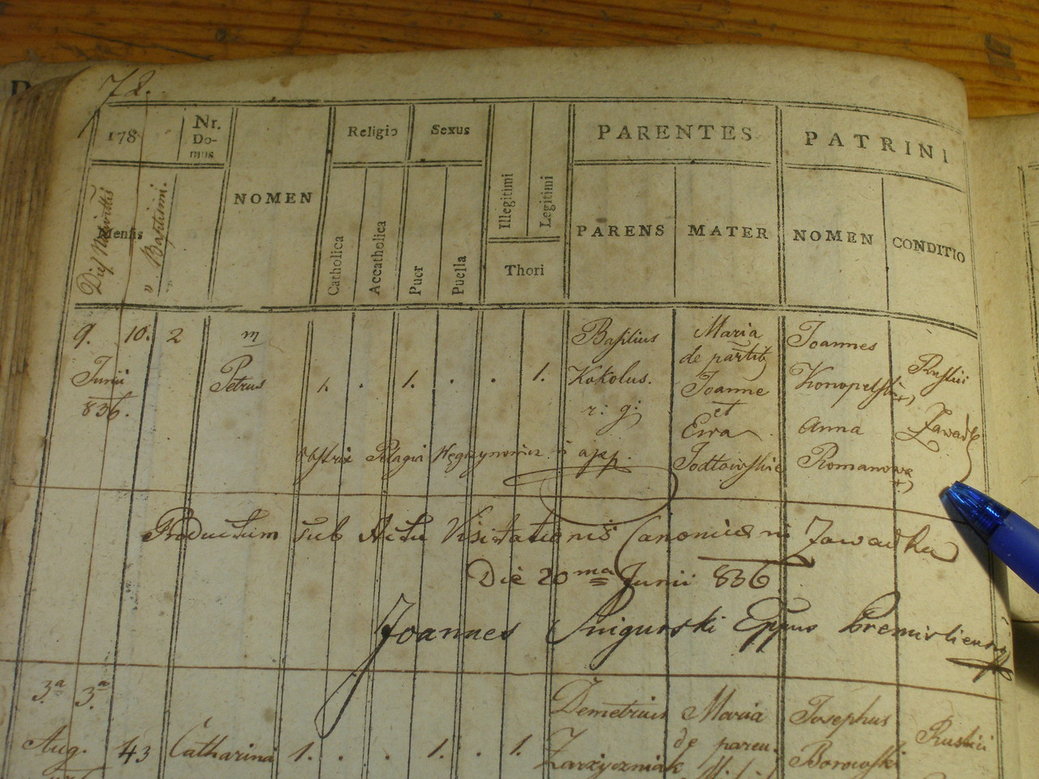 72.
178
Nr. Domus
NOMEN
Religio
Sexus
PARENTES
PATRINI
Mensis
Baptismi.
Catholica
Accatholica
Puer
Puella
Illegitimi
Legitimi
Thori
PARENS
MATER
NOMEN
CONDITIO
9. 10. 2 Basilius Maria Joannes
de
Junii Petrus 1. . 1. . . 1. Kokolus. Joanne Konopelski
836. r: g: et
Ewa Anna
Romanow
Productum sub Actu Visitationis Canonicae in Zawadka
Die 20ma Junii 836
Joannes Snigurski Eppus Premisliensis
3a 3a Demetrius Maria Josephus
Aug. 43 Catharina 1. . . 1. . 1. de paren. Rustici
Borowski